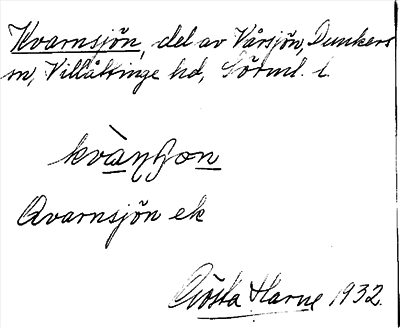 Kvarnsjön, del av Vårsjön, Dunkers
sn, Villåttinge hd, Sörml. l.
kvàn̥ʃon
Qvarnsjön ek
Gösta Harne 1932.